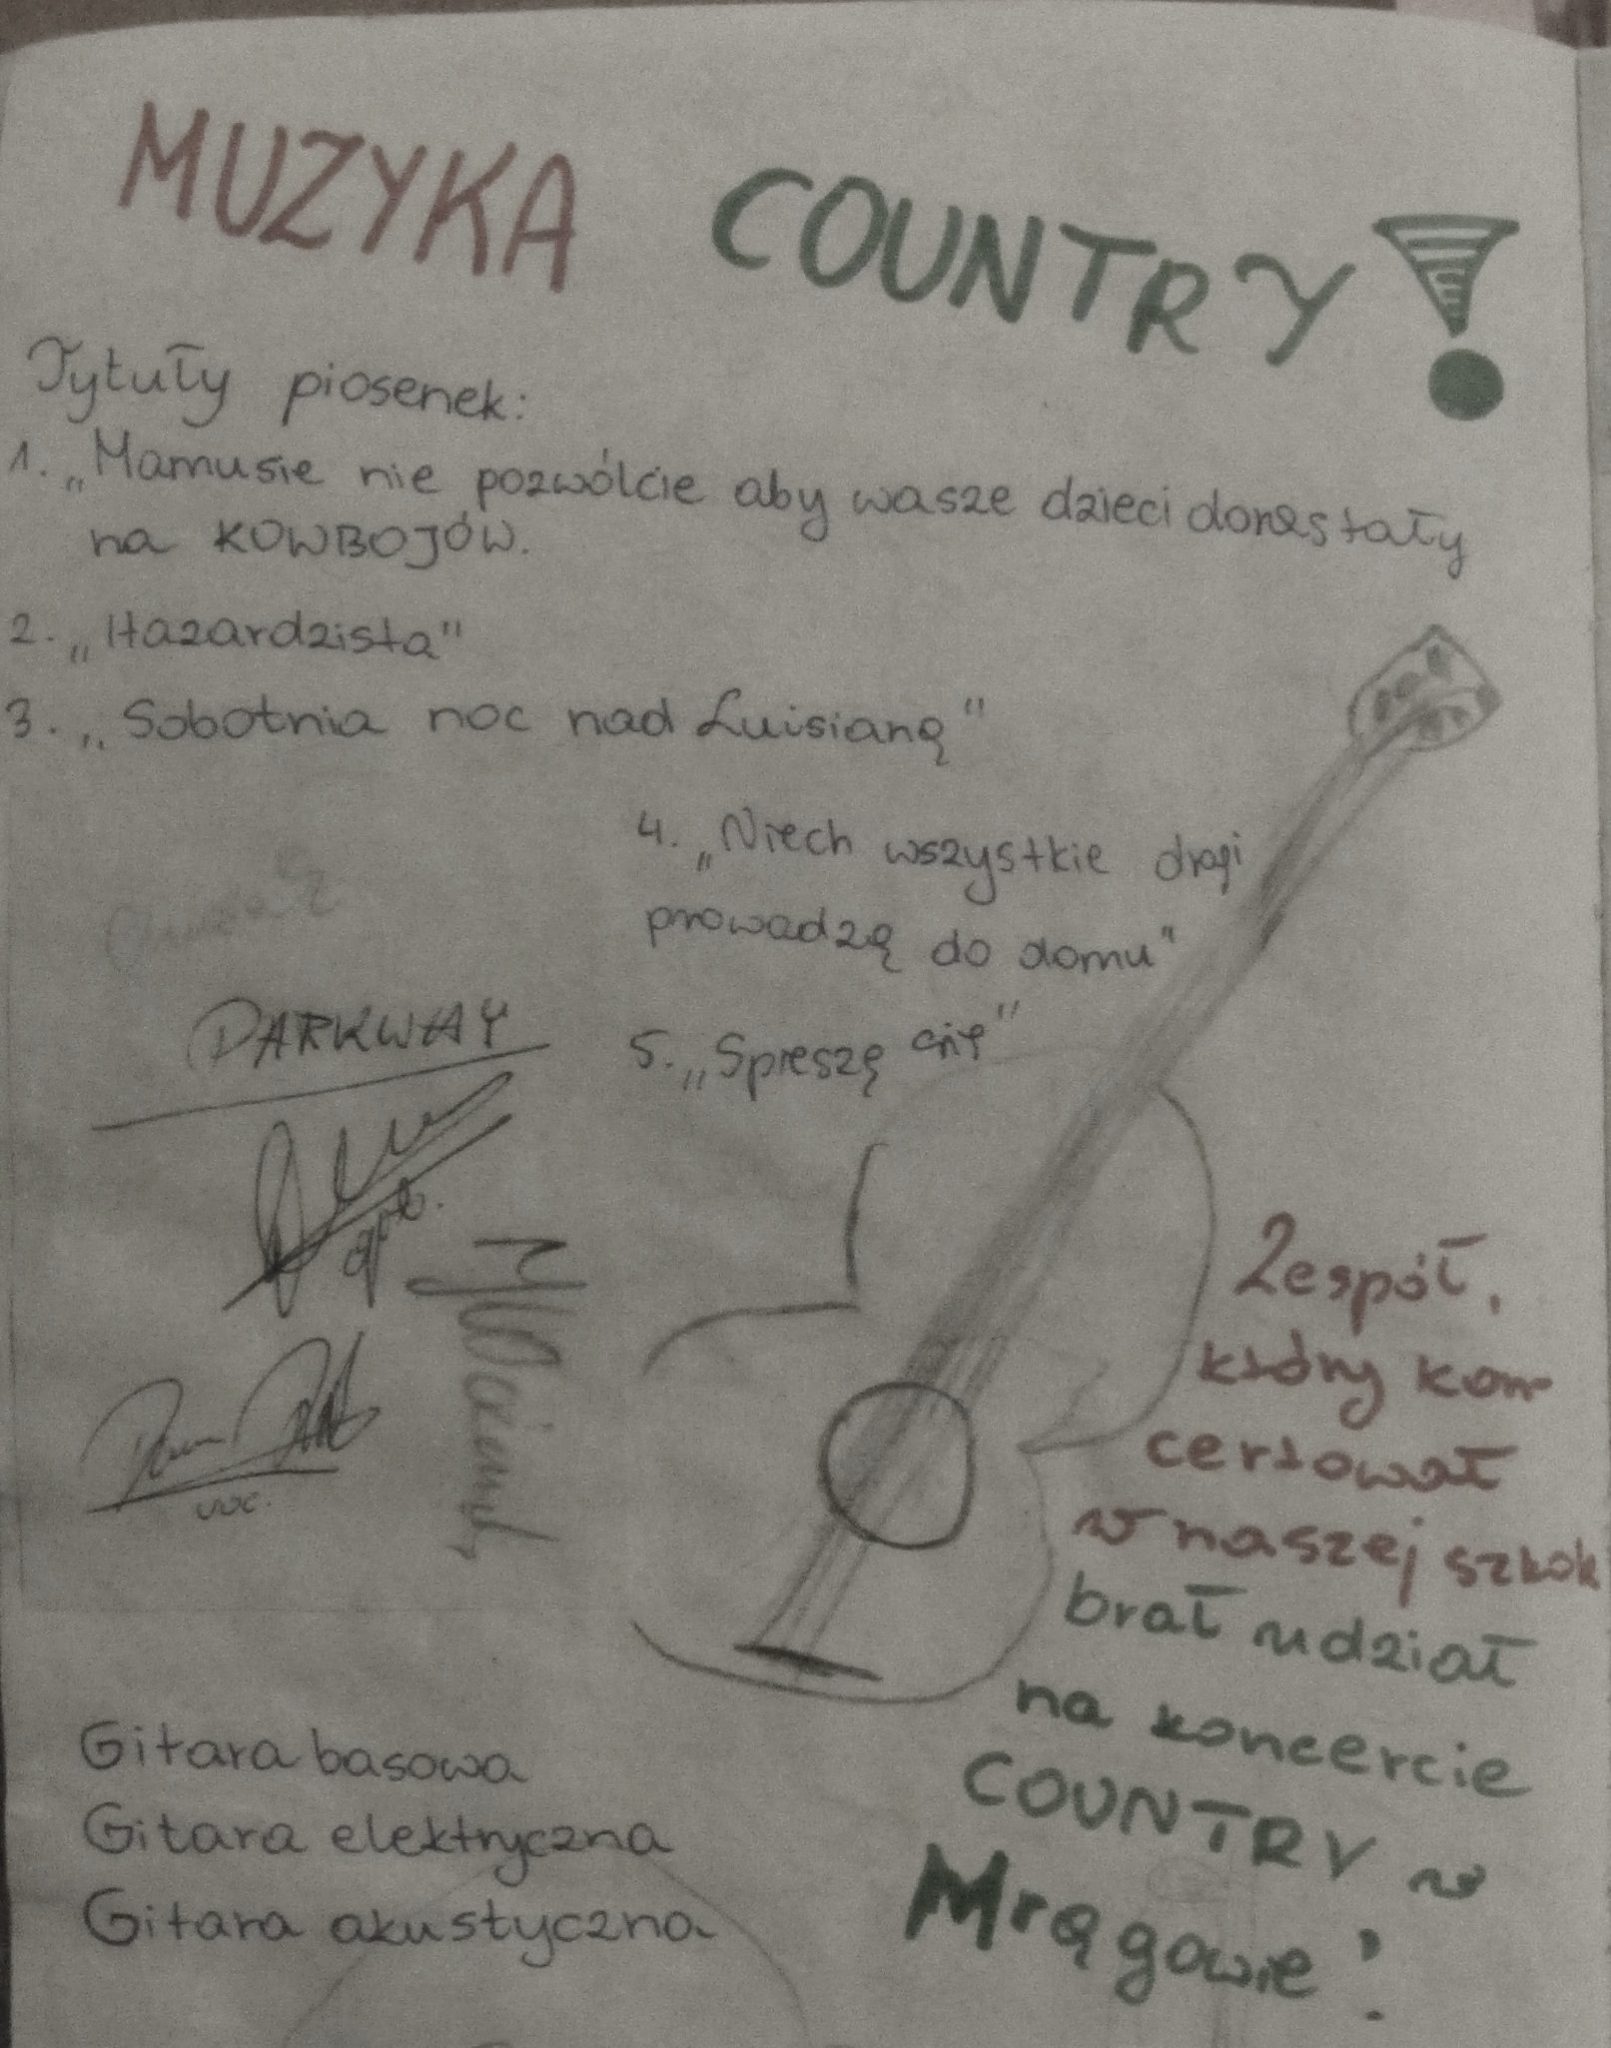 MUZYKA COUNTRY!
Tytuły piosenek:
1. „Mamusie nie pozwólcie aby wasze dzieci dorastały
na KOWBOJÓW.
2. „Hazardzista"
3. „Sobotnia noc nad Luisianą"
4. „Niech wszystkie drogi
prowadzą do domu"
5. „Spieszę się"
DARKWAY
voc.
Zespół,
który kon
certował
w naszej szkole
brał udział
na koncercie
COUNTRY w
Mrągowie!
Gitara basowa
Gitara elektryczna
Gitara akustyczna